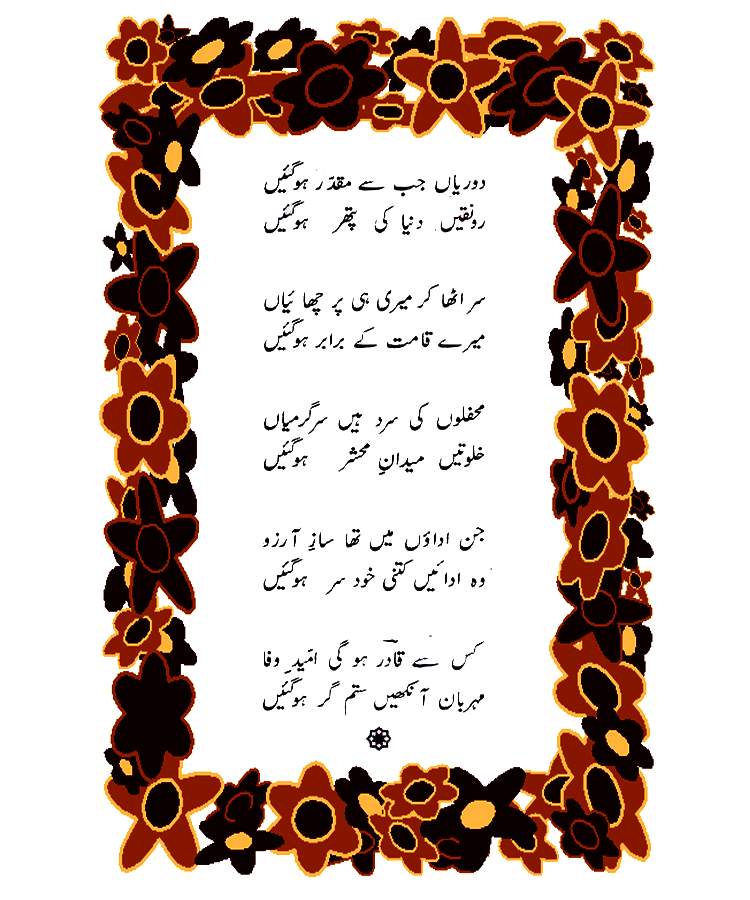 دوریاں جب سے مقدّر ہوگئیں
رونقیں دنیا کی پتھر ہوگئیں
سر اٹھا کر میری ہی پرچھائیاں
میرے قامت کے برابر ہوگئیں
محفلوں کی سرد ہیں سرگرمیاں
خلوتیں میدانِ محشر ہوگئیں
جن اداؤں میں تھا سازِ آرزو
وہ ادائیں کتنی خود سر ہوگئیں
کس سے قادرؔ ہو گی امّیدِ وفا
مہربان آنکھیں ستم گر ہوگئیں